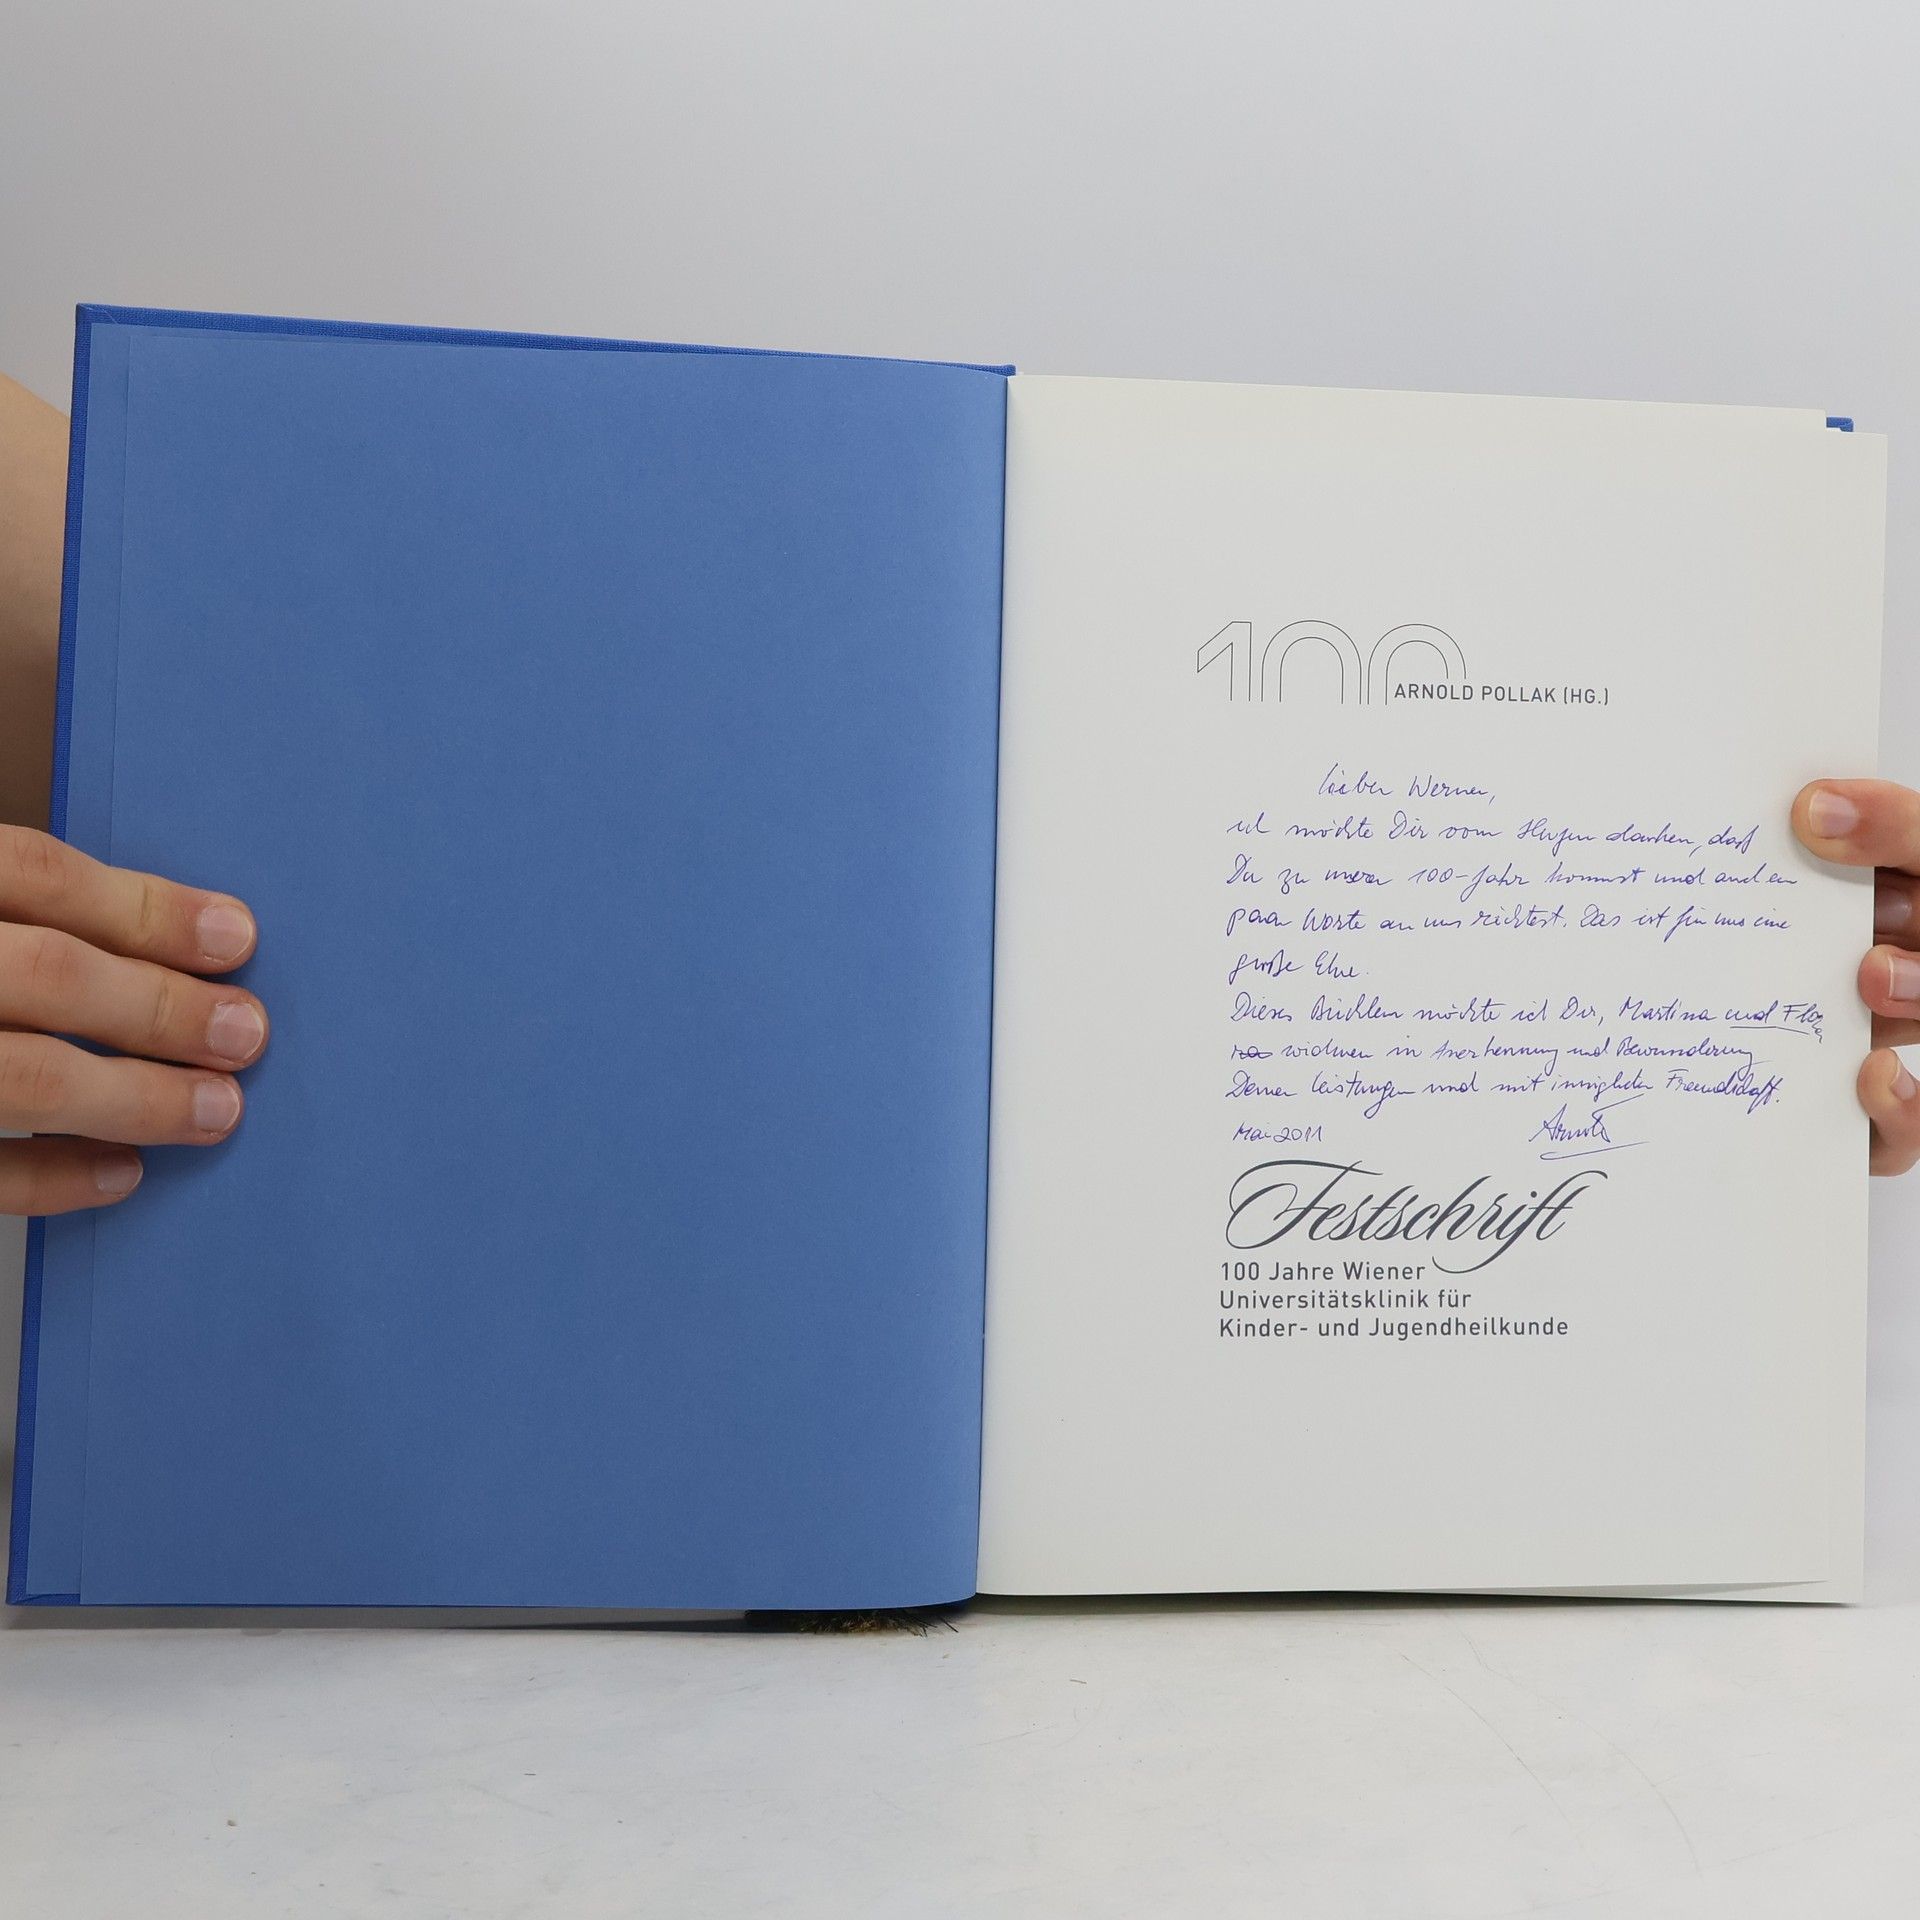 100
ARNOLD POLLAK (HG.)
Lieber Werner,
ich möchte Dir vom Herzen danken, daß
Du zu unserer 100-Jahr kommst und auch ein
paar Worte an uns richtest. Das ist für uns eine
große Ehre.
Dieses Büchlein möchte ich Dir, Martina und Flora
widmen in Anerkennung und Bewunderung
Deiner Leistungen und mit inniglicher Freundschaft.
Mai 2011 Arnold
Festschrift
100 Jahre Wiener
Universitätsklinik für
Kinder- und Jugendheilkunde